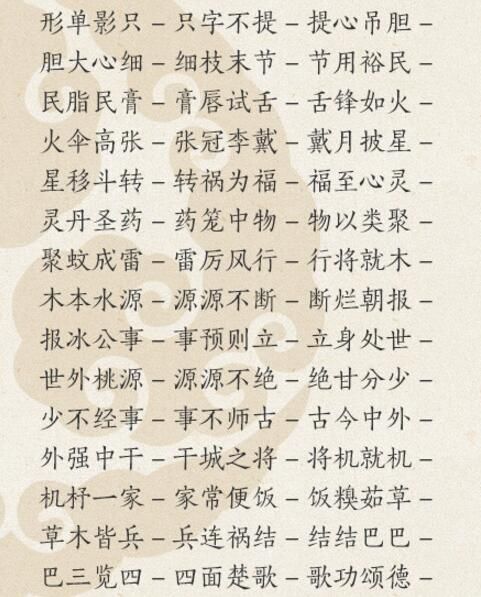 形单影只－只字不提－提心吊胆－
胆大心细－细枝末节－节用裕民－
民脂民膏－膏唇试舌－舌锋如火－
火伞高张－张冠李戴－戴月披星－
星移斗转－转祸为福－福至心灵－
灵丹圣药－药笼中物－物以类聚－
聚蚊成雷－雷厉风行－行将就木－
木本水源－源源不断－断烂朝报－
报冰公事－事预则立－立身处世－
世外桃源－源源不绝－绝甘分少－
少不经事－事不师古－古今中外－
外强中干－干城之将－将机就机－
机杼一家－家常便饭－饭糗茹草－
草木皆兵－兵连祸结－结结巴巴－
巴三览四－四面楚歌－歌功颂德－